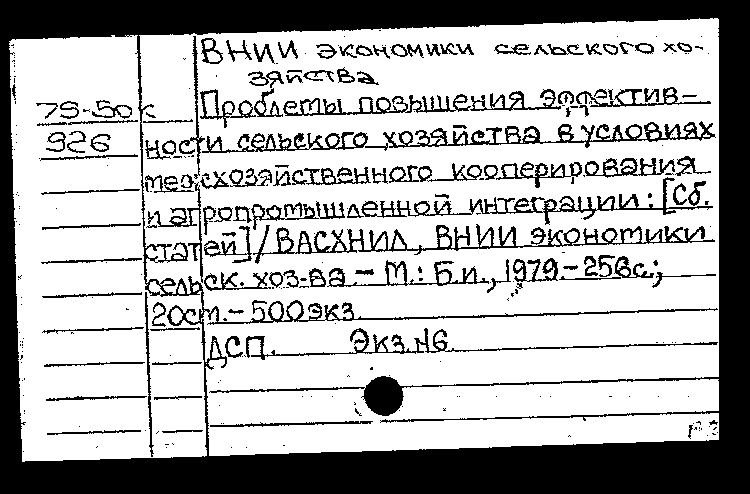 ВНИИ экономики сельского хо-
зяйства
79-50к Проблемы повышения эффектив-
926 ности сельского хозяйства в условиях
межхозяйственного кооперирования
и агропромышленной интеграции: [Сб.
статей] / ВАСХНИЛ, ВНИИ экономики
сельск. хоз-ва. - М.: Б.и., 1979. - 256с.;
20см. - 500экз.
ДСП. Экз.№6.